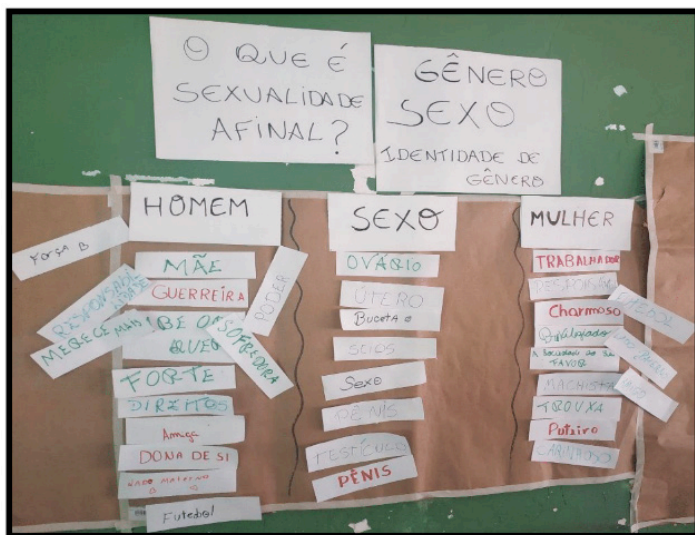 O QUE É
SEXUALIDADE
AFINAL?
GÊNERO
SEXO
IDENTIDADE DE
GÊNERO
HOMEM
Força B
MÃE
GUERREIRA
PODER
RESPONSABILIDADE
MERECE MAIS!
SOFREDORA
FORTE
DIREITOS
Amiga
DONA DE SI
Futebol
SEXO
OVÁRIO
ÚTERO
Buceta
SEIOS
Sexo
PÊNIS
TESTÍCULO
PÊNIS
MULHER
TRABALHADOR
Charmoso
FUTEBOL
A SOCIEDADE AO SEU
FAVOR
MACHISTA
TROUXA
Puteiro
CARINHOSO